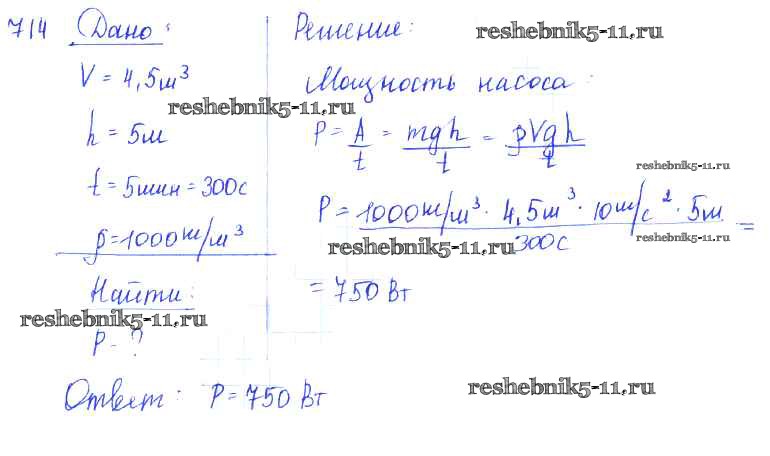 714 Дано:
V = 4,5м³
h = 5м
t = 5мин = 300с
ρ = 1000кг/м³
Найти:
P - ?
Решение:
Мощность насоса:
P = A/t = mgh/t = ρVgh/t
P = 1000кг/м³ · 4,5м³ · 10м/с² · 5м / 300с =
= 750 Вт
Ответ: P = 750 Вт
reshebnik5-11.ru
reshebnik5-11.ru
reshebnik5-11.ru
reshebnik5-11.ru
reshebnik5-11.ru
reshebnik5-11.ru
reshebnik5-11.ru